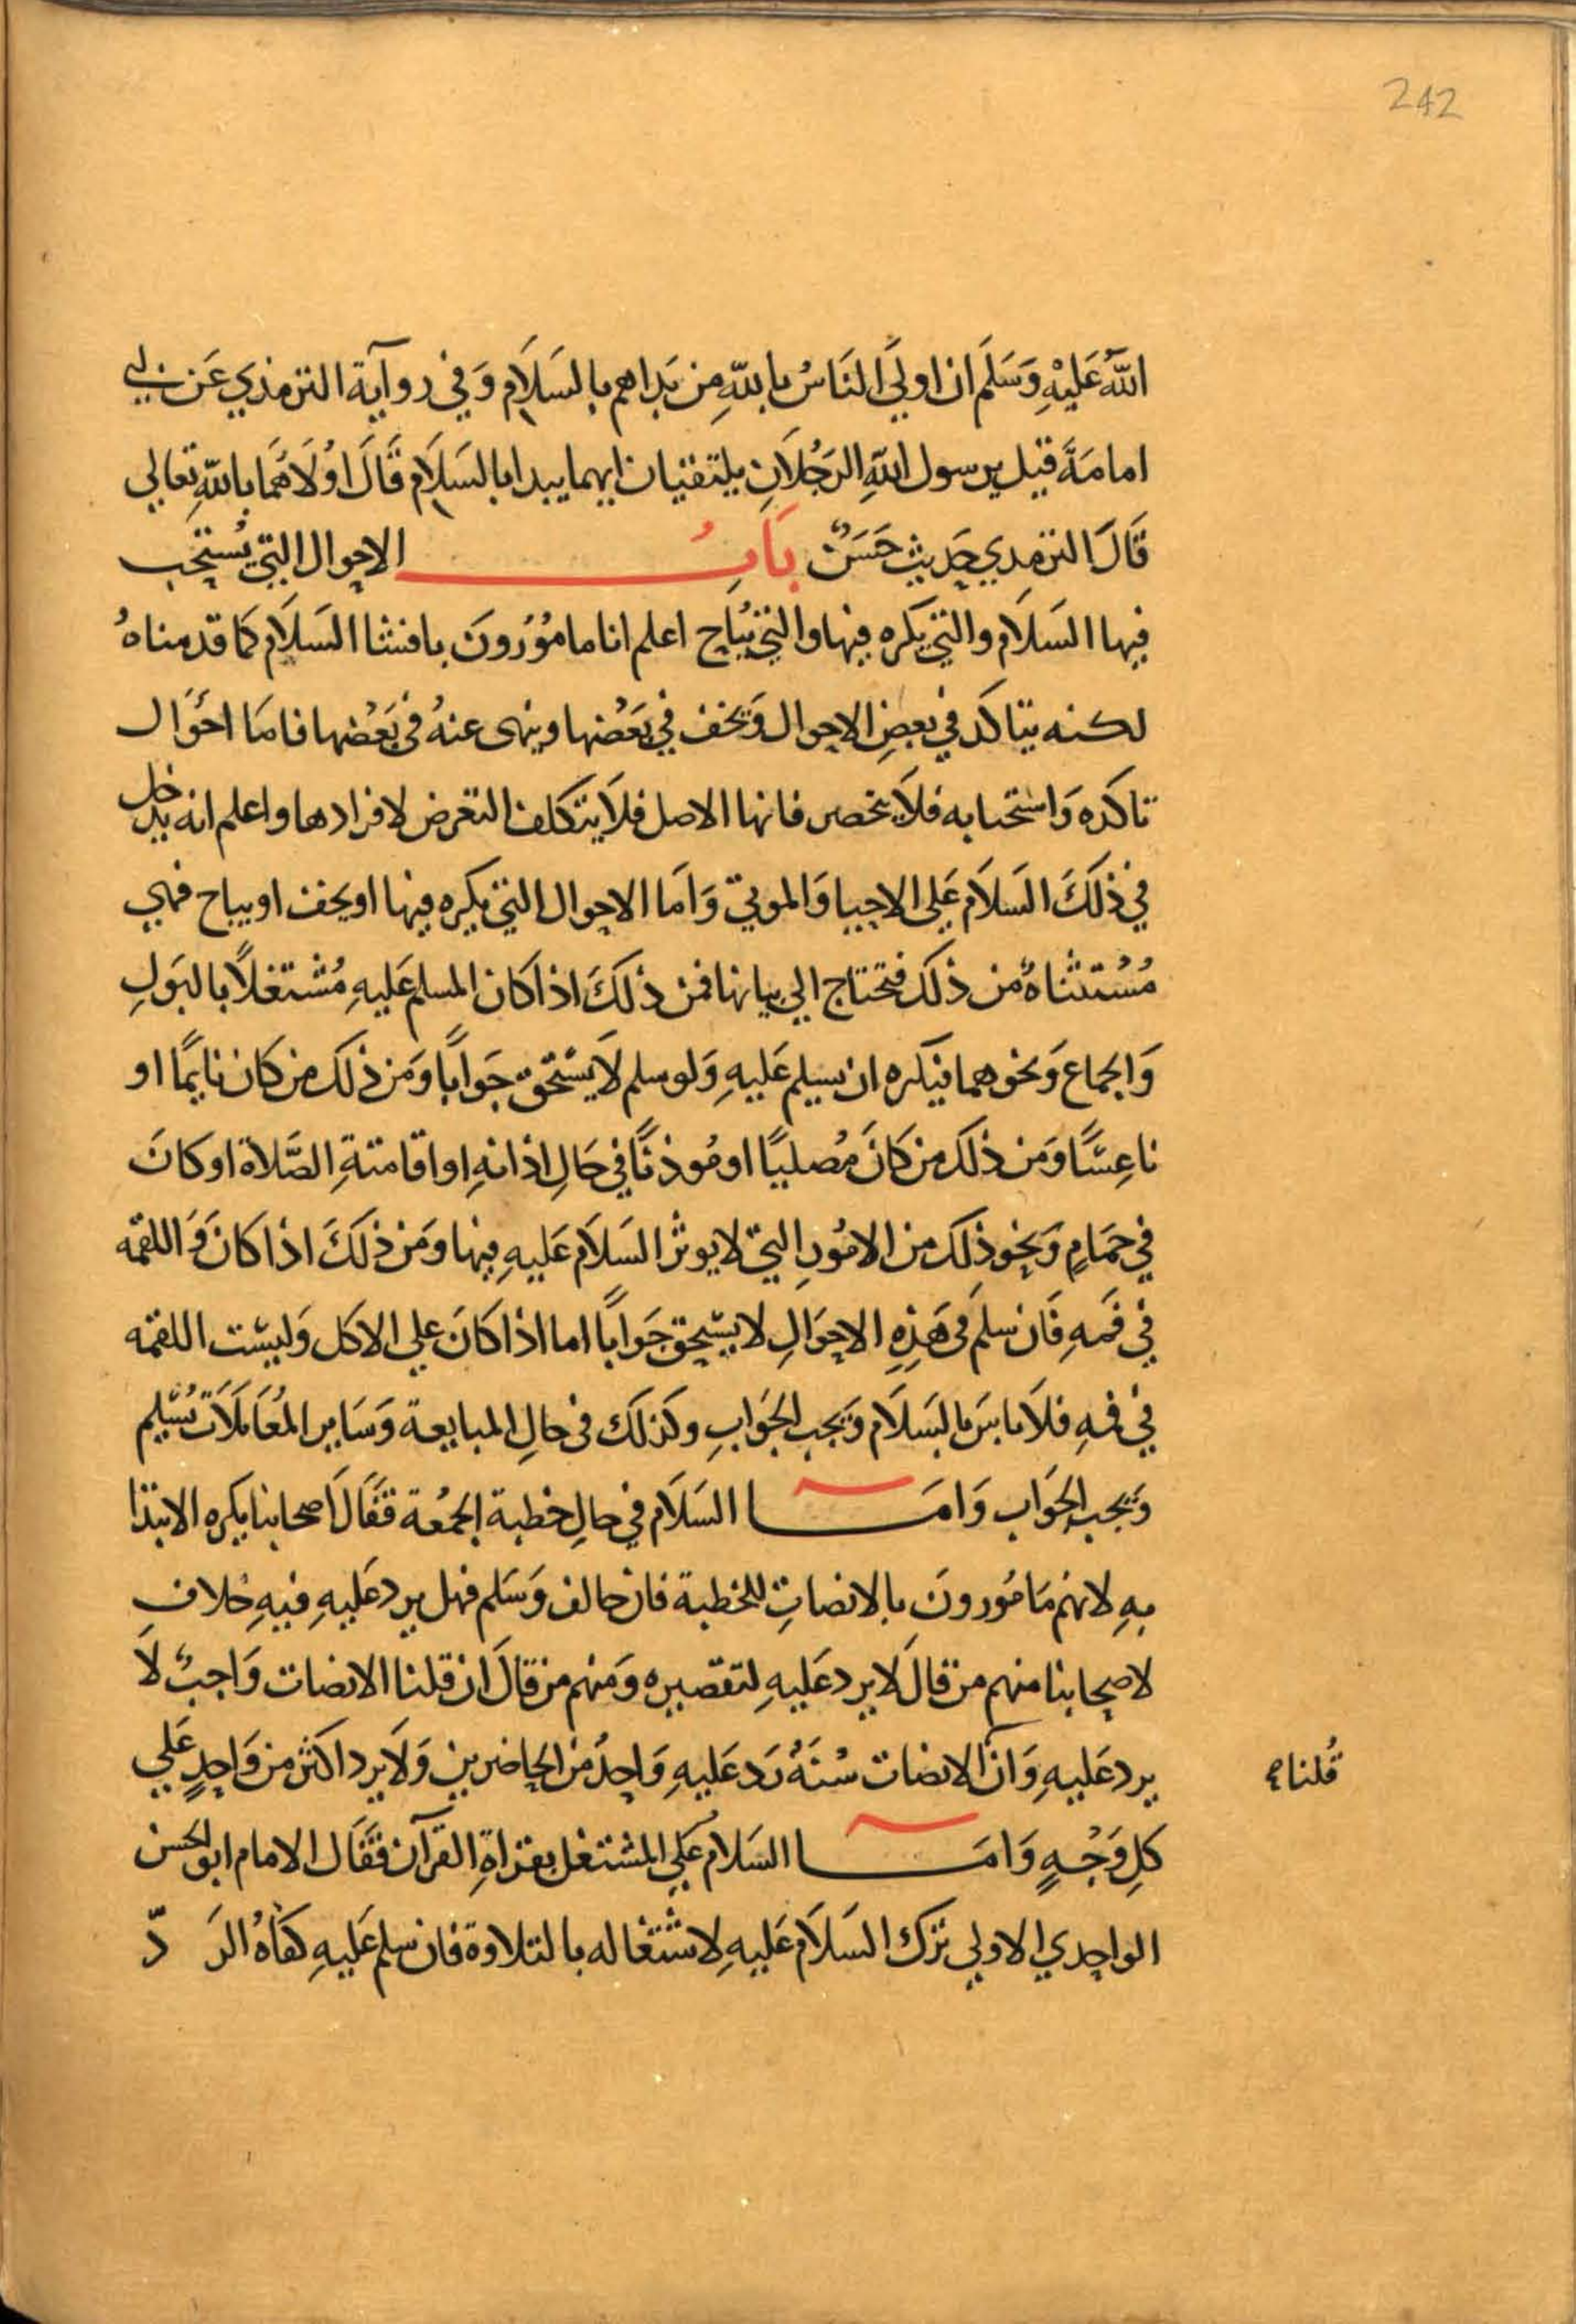 242
اللهُ عَلَيْهِ وَسَلَّمَ ان اولَي النَاسُ باللهِ مِن بَداهم بالسَلَام وَفي روآية الترمذي عَن ابي
امامَةَ قيل يرسول اللهِ الرَجُلَانِ يلتقيان ايهما يبدا بالسَلَام قَالَ اوْلَاهُمَا باللهِ تعالي
قَالَ الترمِدي حَديث حَسَنٌ بَابُ الاحوال التي يُستحَب
فيها السَلَام والتي يكره فيها والتي يُبَاح اعلم انا مامُوُرُونَ بافشا السَلَام كمَا قدمناهُ
لكنه يتاكَد في بعضِ الاحوال وَيخف في بَعْضها وينهى عنهُ في بَعْضها فامَا احْوَال
تاكَده وَاستحبابه فلَا ينحصر فانها الاصل فلَا يتكلف التعرض لافرادها واعلم انه يدخل
في ذلَكَ السَلَام عَلى الاحيا وَالموتي وَامَا الاحوال التي يكره فيها او يخف او يباح فهي
مُسْتثناهٌ من ذلَك فتحتاج الي بيانها فمن ذلَكَ اذا كَان المسلم عَليهِ مُشتغلًا بالبَولِ
وَالجماع وَنحوهما فيكره ان يسلم عَليهِ وَلو سلم لَا يَسْتحق جَوابًا وَمَن ذلَك من كَان نايمًا او
ناعِسًا وَمَن ذلَك من كَانَ مُصليًا او مُوذنًا في حَالِ اذانهِ او اقامتةِ الصَّلَاة او كانَ
في حَمَامٍ وَنحوذلَك من الامُورِ التي لا يوثر السَلَام عَليهِ فيها ومَن ذلَكَ اذا كَانَ وَ اللقمه
في فَمهِ فَان سلمَ في هَذِهِ الاحوَالِ لا يسْتحق جَوابًا اما اذا كَانَ علي الاكل وَليسَت اللقمه
في فمهِ فلَا باسَ بالسَلَام وَيجب الجَوَابِ وكذلَك في حالِ المبايعة وَسَاير المُعَاملَات يُسْلم
وَيجب الجَوَاب وَامَا السَلَام في حالِ خطبة الجمُعة فقَالَ اصحابنا يكره الابتدا
بهِ لانهم مَامُورونَ بالانصاتِ للخطبة فان خالف وَسَلم فهل يرد عَليهِ فيهِ خلاف
لاصحابنا منهم من قالَ لا يرد عَليهِ لتقصيره وَمنهم من قالَ ان قلنا الانصات وَاجبٌ لَا
يرد عَليهِ وَان الانصات سُنَةٌ رَد عَليهِ وَاحِدٌ من الحاضرين وَلَا يرد اكثر من وَاحِدٍ عَلي
قُلنا ه
كلِ وَجْهٍ وَامَا السَلَام عَلي المشتغل بقراةِ القرآن فقَال الامام ابو الحسن
الواحدي الاولي ترَك السَلَام عَليهِ لاشتغاله بالتلاوة فان سلم عَليهِ كفاهُ الرَ دّ